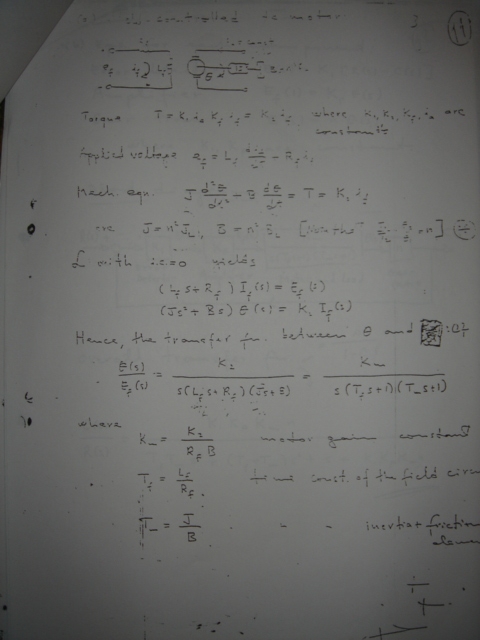 controlled motor 3
Torque T = K₁ iₐ K_f i_f = K₂ i_f, where K₁, K₂, K_f, iₐ are
constants
Applied voltage e_f = L_f di_f/dt + R_f i_f
Mech. eqn. J d²θ/dt² + B dθ/dt = T = K₂ i_f
J = n² J_L, B = n² B_L
L with i.c = 0 yields
(L_f s + R_f) I_f(s) = E_f(s)
(Js² + Bs) θ(s) = K₂ I_f(s)
Hence, the transfer fn. between θ and
θ(s)/E_f(s) = K₂ / s(L_f s + R_f)(Js + B) = K_m / s(T_f s + 1)(T_m s + 1)
where
K_m = K₂ / R_f B motor gain constant
T_f = L_f / R_f time const. of the field circ
T_m = J / B " " inertia + friction
elem